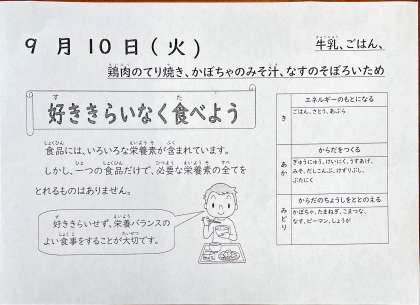 9月10日(火)
牛乳、ごはん、
鶏肉のてり焼き、かぼちゃのみそ汁、なすのそぼろいため
好ききらいなく食べよう
食品には、いろいろな栄養素が含まれています。
しかし、一つの食品だけで、必要な栄養素の全てを
とれるものはありません。
好ききらいせず、栄養バランスの
よい食事をすることが大切です。
エネルギーのもとになる
き
ごはん、さとう、あぶら
からだをつくる
あか
ぎゅうにゅう、けいにく、うすあげ、
みそ、だしこんぶ、けずりぶし、
ぶたにく
からだのちょうしをととのえる
みどり
かぼちゃ、たまねぎ、こまつな、
なす、ピーマン、しょうが